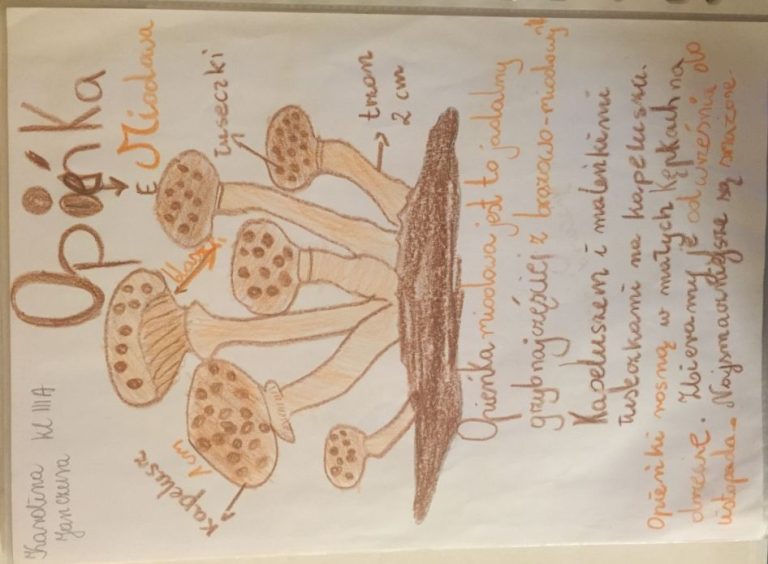 Karolina
Janczura kl IIIA
Opieńka
Miodowa
łuseczki
trzon
2 cm
kapelusz
1cm
Opieńka miodowa jest to jadalny
grzyb najczęściej z brązowo-miodowym
Kapeluszem i maleńkimi
łuseczkami na kapeluszu.
Opieńki rosną w małych kępkach na
drzewie. Zbieramy je od września do
listopada. Najsmaczniejsze są smażone.